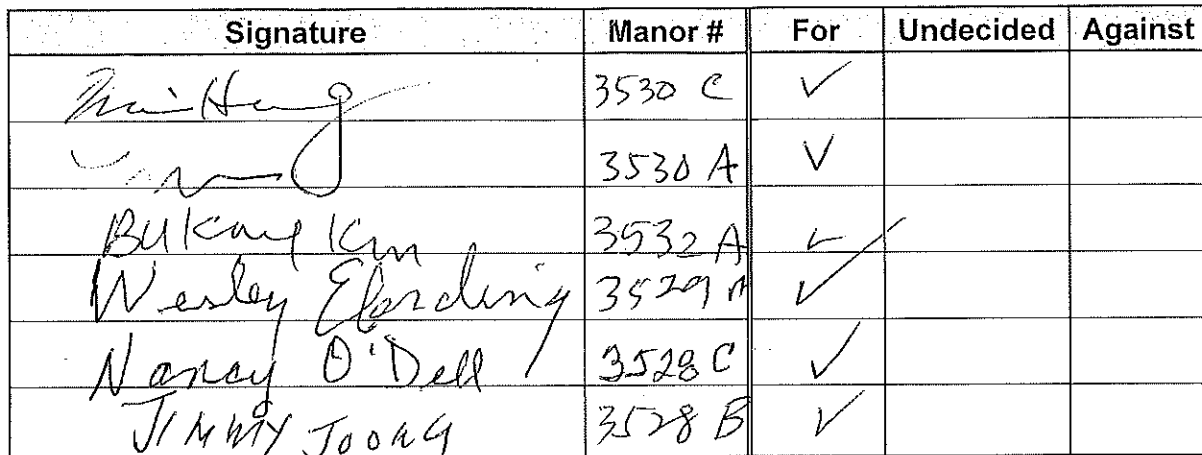 Signature Manor # For Undecided Against
3530 C ✓
3530 A ✓
Kim 3532 A ✓
Wesley 3529 A ✓
Nancy O'Dell 3528 C ✓
JIMMY JOONG 3528 B ✓